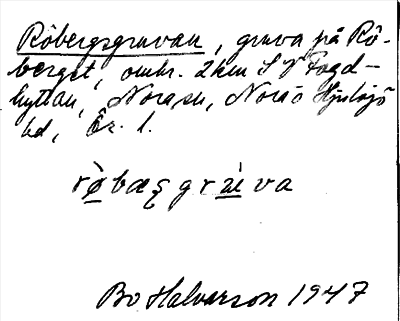 Röbergsgruvan, gruva på Rö-
berget, omkr. 2 km S V Fogd-
hyttan, Nora sn, Nora o Hjulsjö
bd, Ör. l.
Bo Halvarson 1947